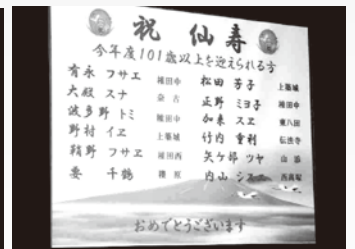 祝 仙寿
今年度101歳以上を迎えられる方
有永 フサエ 種田中
大殿 スナ 奈古
波多野 トミ 種田中
野村 イエ 上築城
鞘野 フサエ 種田西
要 千鶴
松田 芳子 上築城
正野 ミヨ子 種田中
加来 スエ 東八田
竹内 重利 伝法寺
矢ケ部 ツヤ 山添
内山 シズエ 西高塚
おめでとうございます